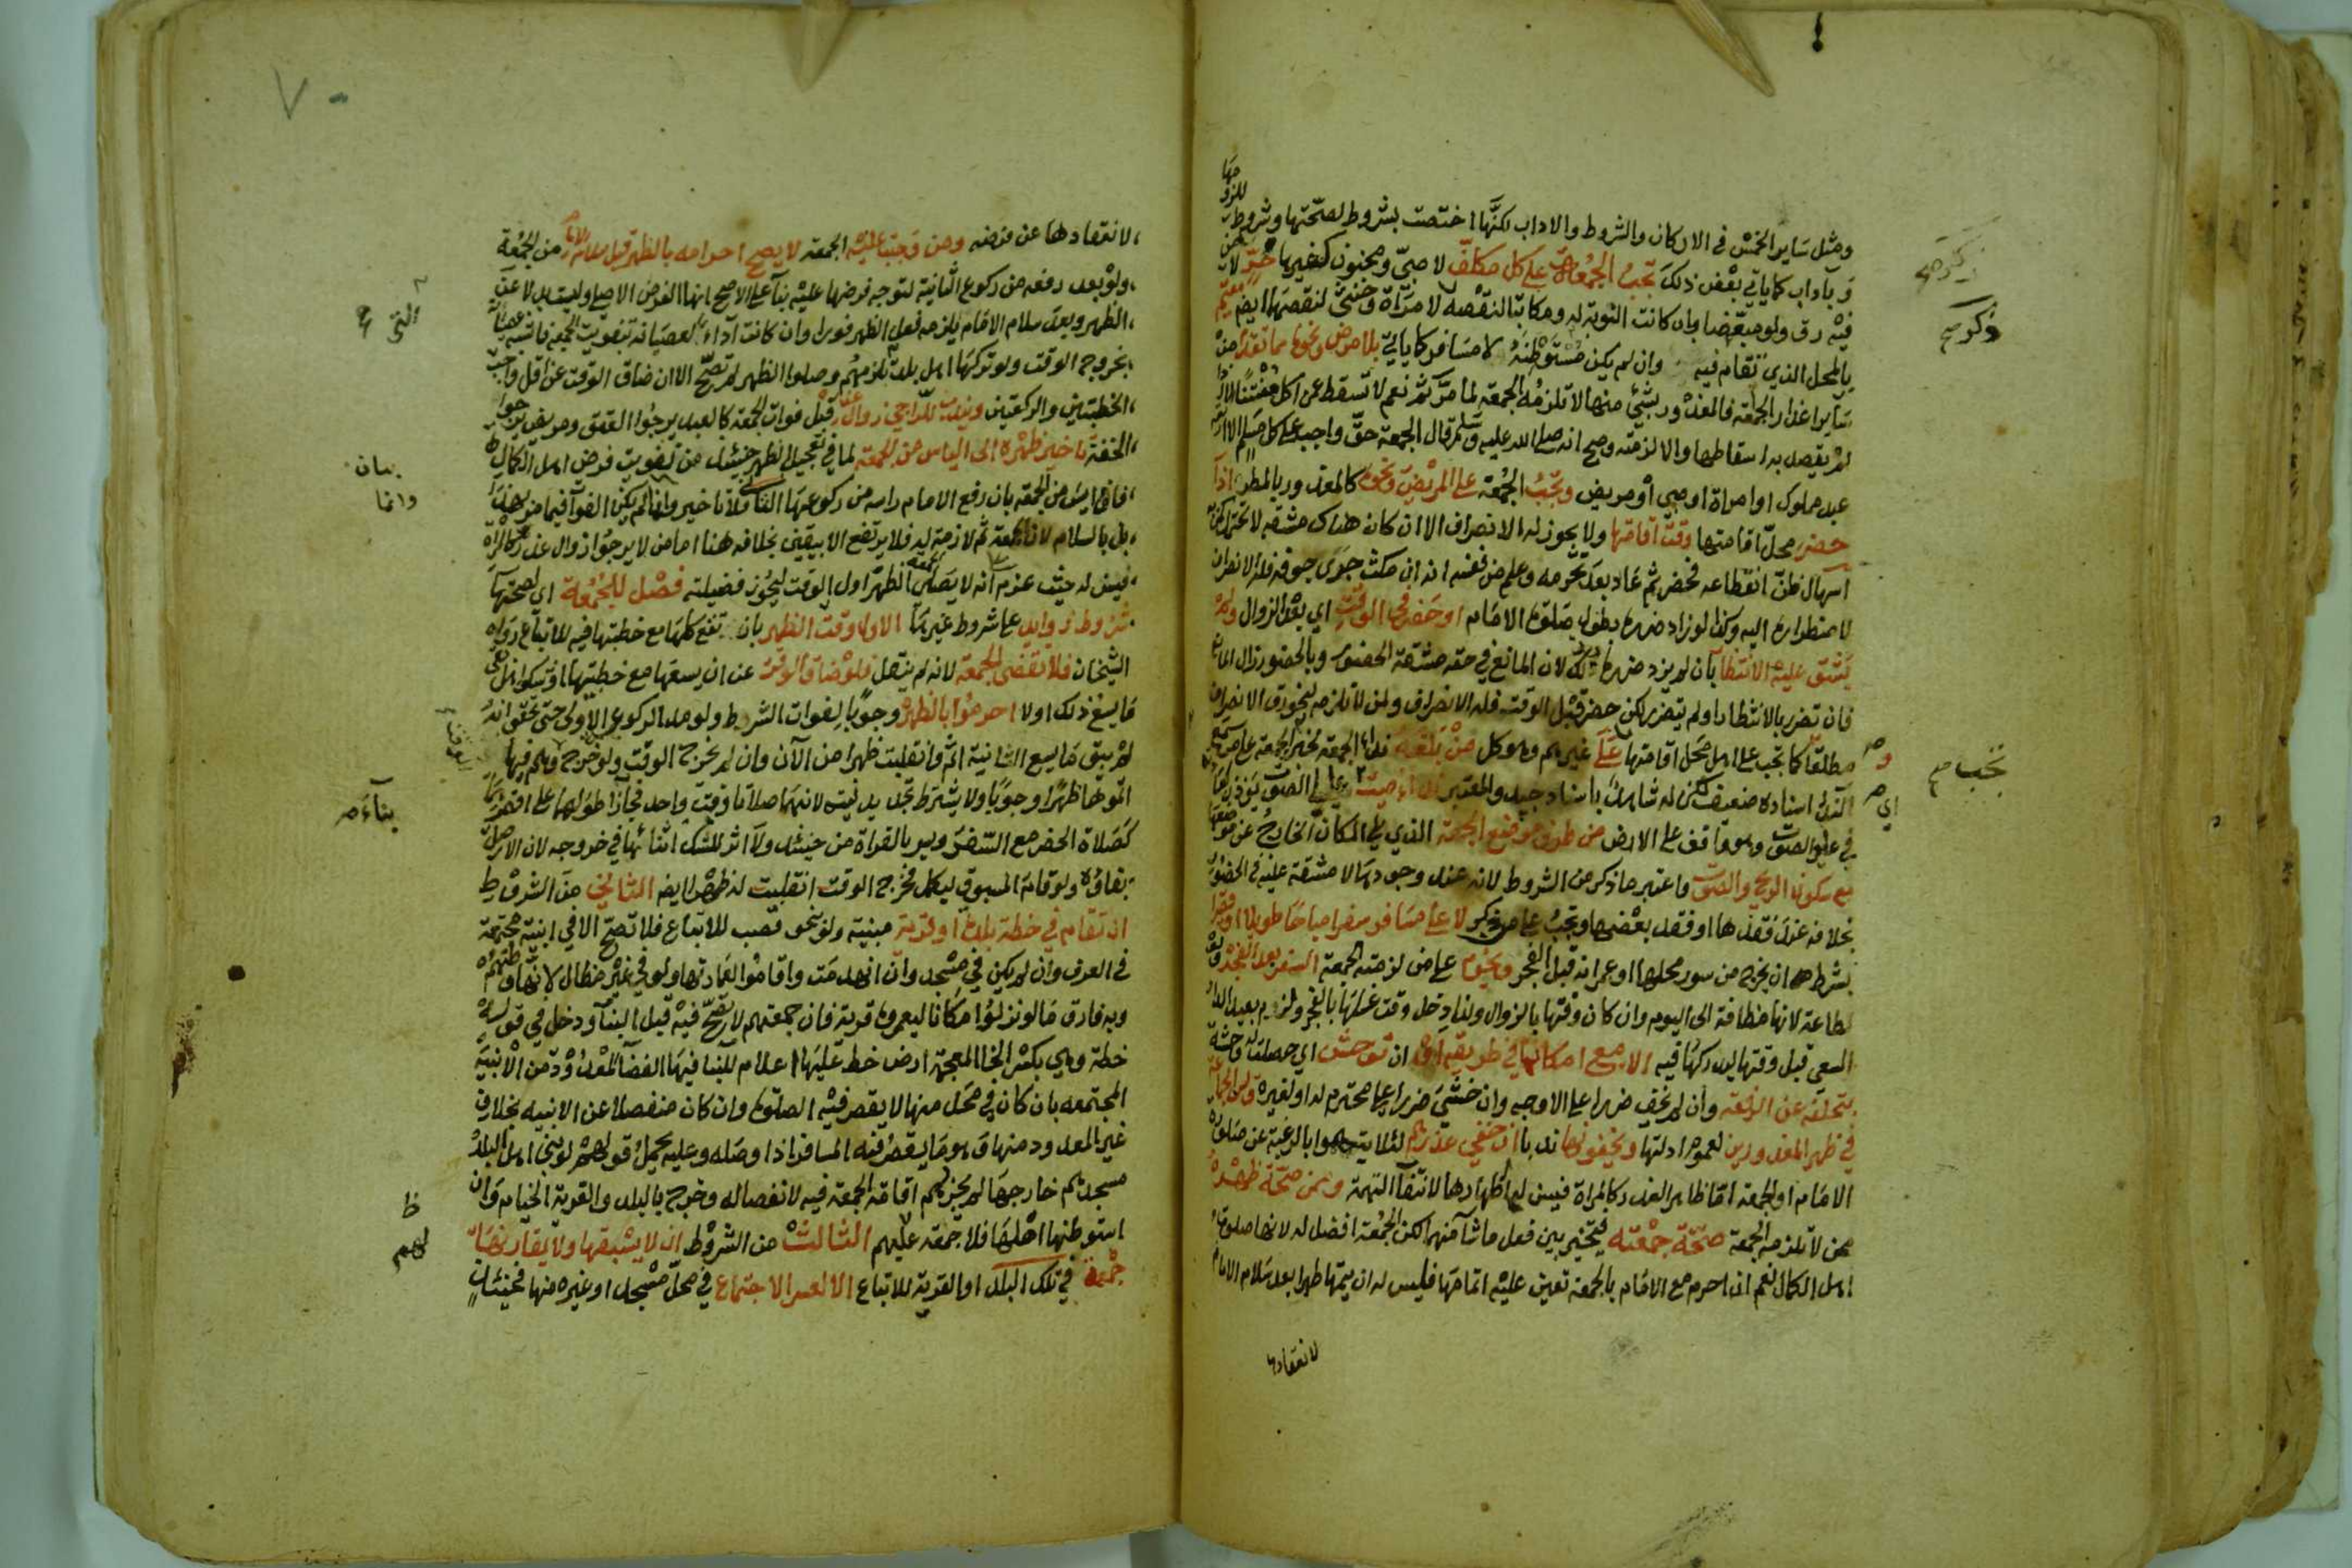 ومثل ساير الخمس في الاركان والشروط والاداب لكنها اختصت بشروط لصحتها وشروط للزومها
وبآداب كما ياتي بعض ذلك تجب الجمعة على كل مكلف لا صبي ومجنون كغيرها حر لا من
فيه رق ولو مبعضا وان كانت النوبة له ومكاتبا لنقصه لا مراة وخنثى لنقصهما ايضا مقيم
بالمحل الذي تقام فيه وان لم يكن مستوطنه لا مسافر كما ياتي بلا مرض ونحوه مما تقدم من
ساير اعذار الجمعة فالمعذور بشي منها لا تلزمه الجمعة لما مر ثم نعم لا تسقط عن اكل منتنا الا ان
لم يقصد به اسقاطها والا لزمته وصح انه صلى الله عليه وسلم قال الجمعة حق واجب على كل مسلم الا اربعة
عبد مملوك او امراة او صبي او مريض وتجب الجمعة على المريض ونحوه كالمعذور بالمطر اذا
حضر محل اقامتها وقت اقامتها ولا يجوز له الانصراف الا ان كان هناك مشقة لا تحتمل كمن به
اسهال ظن انقطاعه فحضر ثم عاد بعد تحرمه وعلم من نفسه انه ان مكث جرى جوفه فله الانصراف
لاضطراره اليه وكذا لو زاد ضرره بطول صلوة الامام او حضر في الوقت اي بعد الزوال ولم
يشق عليه الانتظار بان لم يزد ضرره بذلك لان المانع في حقه مشقة الحضور وبالحضور زال المانع
فان تضرر بالانتظار او لم يتضرر لكن حضر قبل الوقت فله الانصراف ولمن لا تلزمه نحو رق الانصراف
مطلقا كما تجب على اهل محل اقامتها على غيرهم وهو كل من بلغه نداء الجمعة لخبر الجمعة على من سمع
النداء اسناده ضعيف لكن له شاهد باسناد جيد والمعتبر نداء صيت على الصوت يؤذن كعادته
في علو الصوت وهو واقف على الارض من طرف موضع الجمعة الذي يلي المكان الخارج عن موضعها
مع سكون الريح والصوت واعتبر ما ذكر من الشروط لانه عند وجودها لا مشقة عليه في الحضور
بخلافه عند فقدها او فقد بعضها وتجب على من ذكر لا على مسافر سفرا مباحا طويلا او قصيرا
بشرط ان يخرج من سور محلها او عمرانه قبل الفجر ويحرم على من لزمته الجمعة السفر بعد الفجر ولو
لطاعة لانها مضافة الى اليوم وان كان وقتها بالزوال ولذا دخل وقت غسلها بالفجر ولزم بعيد الدار
السعي قبل وقتها ليدركها فيه الا مع امكانها في طريقه او ان توحش اي حصلت له وحشة
بتخلفه عن الرفقة وان لم يخف ضررا على الاوجه وان خشي ضررا على محترم له او لغيره وتسن الجماعة
في ظهر المعذورين لعموم ادلتها ويخفونها ندبا ان خفي عذرهم لئلا يتهموا بالرغبة عن صلوة
الامام او الجمعة اما ظاهر العذر كالمراة فيسن لها اظهارها لانتفا التهمة ومن صحة ظهره
ممن لا تلزمه الجمعة صحة جمعته فيتخير بين فعل ما شا منهما لكن الجمعة افضل له لانها صلوة
اهل الكمال نعم ان احرم مع الامام بالجمعة تعين عليه اتمامها فليس له ان يتمها ظهرا بعد سلام الامام
لانعقادها
تجب
اي
٧٠
لانعقادها عن فرضه ومن وجبت عليه الجمعة لا يصح احرامه بالظهر قبل سلام الامام من الجمعة
ولو بعد رفعه من ركوع الثانية لتوجه فرضها عليه بنا على الاصح انها الفرض الاصلي وليست بدلا عن
الظهر وبعد سلام الامام يلزمه فعل الظهر فورا وان كانت اداء لعصيانه بتفويت الجمعة فاشبه عصيانه
بخروج الوقت ولو تركها اهل بلد تلزمهم وصلوا الظهر لم تصح الا ان ضاق الوقت عن اقل واجب
الخطبتين والركعتين ويندب للراجي زوال عذره قبل فوات الجمعة كالعبد يرجوا العتق ومريض يرجوا
الخفة تاخير ظهره الى الياس من الجمعة لما في تعجيل الظهر حينئذ من تفويت فرض اهل الكمال
فان ايس من الجمعة بان رفع الامام راسه من ركوعها الثاني فلا تاخير وانما لم يكن الفوات فيما مر
بل بالسلام لان الجمعة ثم لازمة له فلا يرتفع الا بيقين بخلافه هنا اما من لا يرجوا زوال عذره كالمراة
فيسن له حيث عزم انه لا يصلي الجمعة الظهر اول الوقت ليحوز فضيلته فصل للجمعة اي لصحتها
شروط زوايد على شروط غيرها الاول وقت الظهر بان تقع كلها مع خطبتها فيه للاتباع رواه
الشيخان فلا تقضى الجمعة لانه لم ينقل فلو ضاق الوقت عن ان يسعها مع خطبتيها او شكوا هل بقي
ما يسع ذلك اولا احرموا بالظهر وجوبا لفوات الشرط ولو مد الركوع الاولى حتى تحقق انه
لم يبق ما يسع الثانية اتم وانقلبت ظهرا من الآن وان لم يخرج الوقت ولو خرج وهم فيها
اتموها ظهرا وجوبا ولا يشترط تجديد نيته لانهما صلاتا وقت واحد فجاز اطولهما على اقصرهما
كصلاة الحضر مع السفر ويسر بالقراة من حينئذ ولا اثر للشك اثنائها في خروجه لان الاصل
بقاؤه ولو قام المسبوق ليكمل فخرج الوقت انقلبت له ظهرا ايضا الثاني من الشروط
ان تقام في خطة بلد او قرية مبنية ولو بنحو قصب للاتباع فلا تصح الا في ابنية مجتمعة
في العرف وان لم يكن في مسجد وان انهدمت واقاموا لعمارتها ولو في غير مظال لانها وطنهم
وبه فارق ما لو نزلوا مكانا ليعمروه قرية فان جمعتهم لا تصح فيه قبل البنا ودخل في قوله
خطة وهي بكسر الخا المعجمة ارض خط عليها اعلام للبنا فيها الفضا المعدود من الابنية
المجتمعه بان كان في محل منها لا يقصر فيه الصلوة وان كان منفصلا عن الابنيه بخلاف
غير المعدود منها وهو ما يقصر فيه المسافر اذا وصله وعليه يحمل قولهم لو بنى اهل البلد
مسجدهم خارجها لم يجز لهم اقامة الجمعة فيه لانفصاله وخرج بالبلد والقرية الخيام وان
استوطنها اهلها فلا جمعة عليهم الثالث من الشروط ان لا يسبقها ولا يقارنها
جمعة في تلك البلد او القرية للاتباع الا لعسر الاجتماع في محل مسجد او غيره منها فحينئذ
بيان
وانما
بناء
ظ
لهم